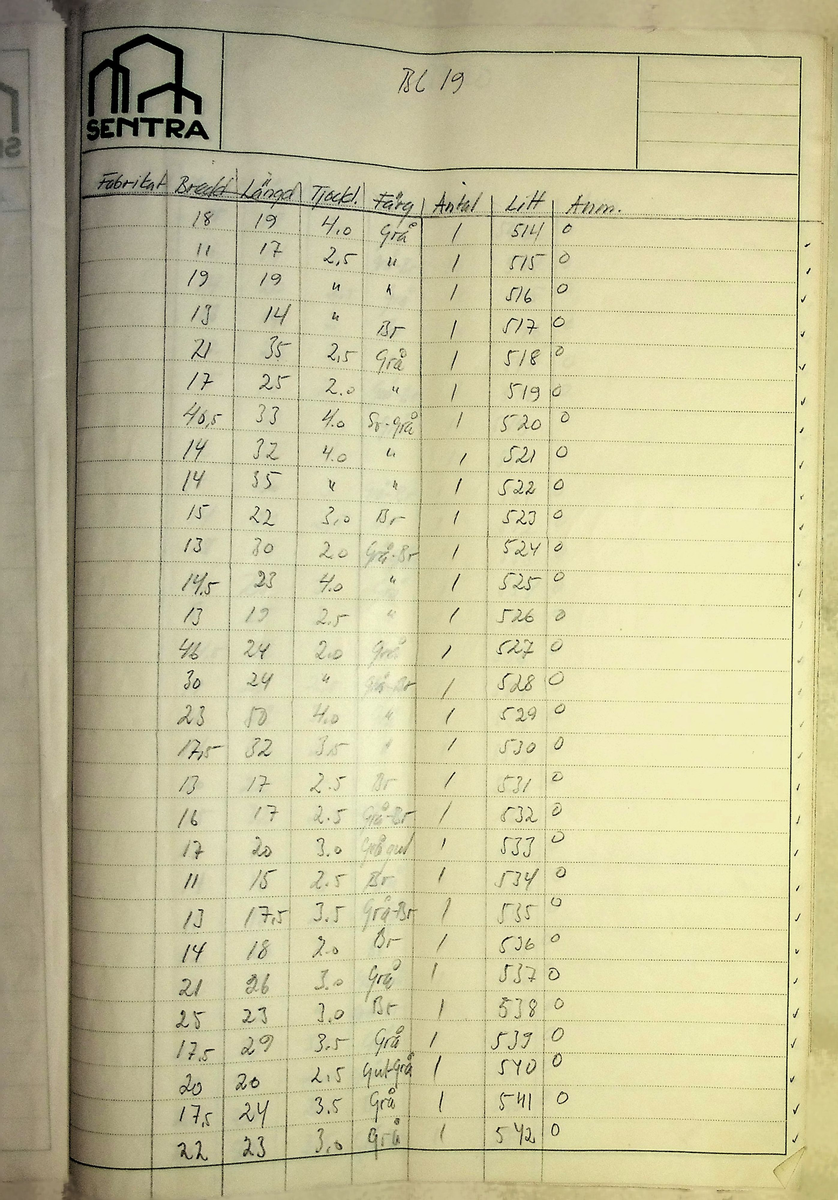 SENTRA
BL 19
Fabrikat Bredd Längd Tjockl. Färg Antal Litt Anm.
18 19 4.0 Grå 1 514 0
11 17 2,5 " 1 515 0
19 19 " " 1 516 0
13 14 " Br 1 517 0
21 35 2,5 Grå 1 518 0
17 25 2.0 " 1 519 0
40,5 33 4.0 1 520 0
14 32 4.0 " 1 521 0
14 35 " " 1 522 0
15 22 3,0 Br 1 523 0
13 30 2.0 Grå-Br 1 524 0
14,5 23 4.0 " 1 525 0
13 19 2.5 " 1 526 0
46 24 2.0 Grå 1 527 0
30 24 " Grå-Br 1 528 0
23 50 4.0 " 1 529 0
17,5 32 3,5 " 1 530 0
13 17 2.5 Br 1 531 0
16 17 2.5 Grå-Br 1 532 0
17 20 3.0 1 533 0
11 15 2.5 Br 1 534 0
13 17,5 3.5 Grå-Br 1 535 0
14 18 2.0 Br 1 536 0
21 26 3.0 Grå 1 537 0
25 23 3.0 Br 1 538 0
17,5 29 3.5 Grå 1 539 0
20 20 2,5 Gul-Grå 1 540 0
17,5 24 3.5 Grå 1 541 0
22 23 3,0 Grå 1 542 0